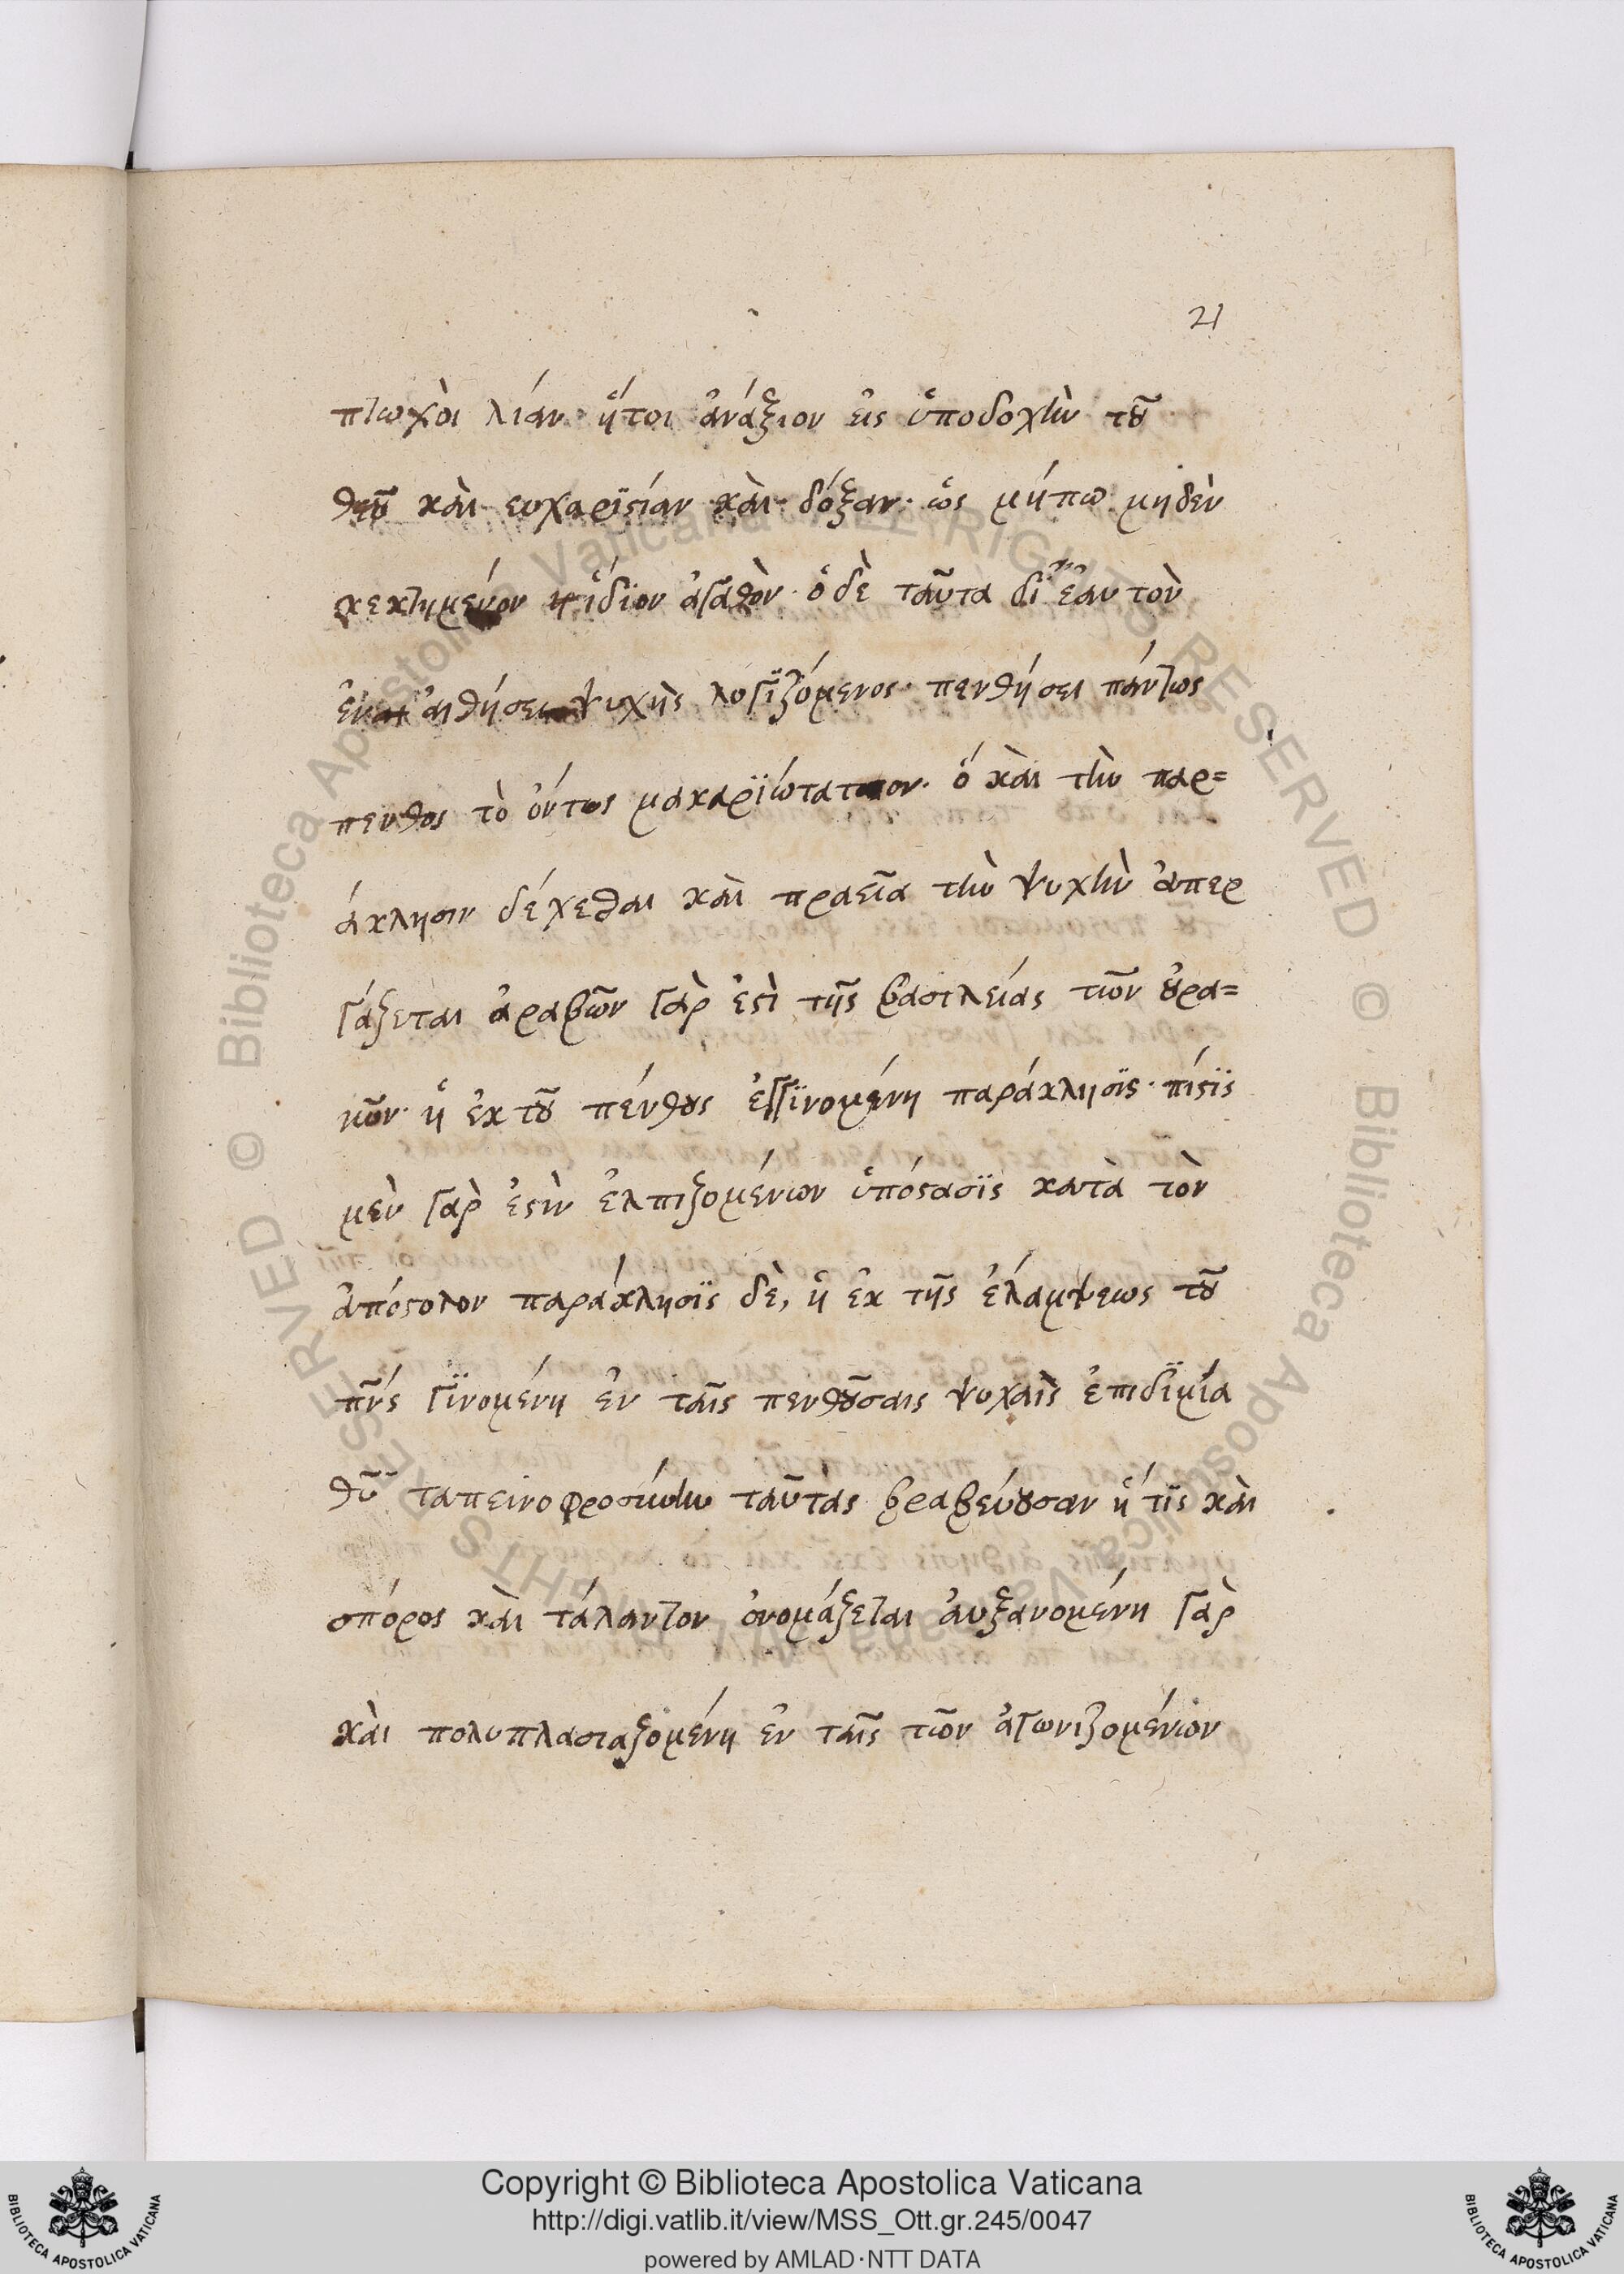 21
πτωχὸι λίαν· ἤτοι ἀνάξιον εἰς ὑποδοχὴν τοῦ
θεοῦ καὶ ευχαριστίαν καὶ δόξαν· ὡς μήπω μηδὲν
κεκτημένον ἴδιον ἀγαθὸν· ὁ δὲ ταῦτα δι' ἑαυτὸν
ἐν αἰσθήσει ψυχῆς λογϊζόμενος· πενθήσει πάντως
πενθος τὸ ὄντος μακαρϊώτατον· ὁ καὶ τὴν παρ=
άκλησιν δέχεσθαι καὶ πραεῖα τὴν ψυχὴν ἀπερ
γάζεται ἀραβῶν γὰρ ἐστὶ τῆς βασιλείας τῶν οὐρα=
νῶν· ἡ ἐκ τοῦ πένθους ἐγγϊνομένη παράκλησϊς· πίστϊς
μὲν γαρ ἐστὶν ἐλπιζομένων ὑπόστασϊς κατὰ τὸν
ἀπόστολον παράκλησϊς δὲ, ἡ ἐκ τῆς ἐλάμψεως τοῦ
πν̅ς γϊνομένη ἐν ταῖς πενθοῦσαις ψυχαῖς ἐπιδϊμία
θυ̅ ταπεινοφροσύνην ταῦτας βραβεύουσαν ἥ τϊς καὶ
σπόρος καὶ τάλαντον ὀνομάζεται ἀυξανομένη γὰρ
καὶ πολυπλασιαζομένη ἐν ταῖς τῶν ἀγωνιζομένων
Copyright © Biblioteca Apostolica Vaticana
http://digi.vatlib.it/view/MSS_Ott.gr.245/0047
powered by AMLAD·NTT DATA
BIBLIOTECA APOSTOLICA VATICANA
BIBLIOTECA APOSTOLICA VATICANA
© Biblioteca Apostolica Vaticana ALL RIGHTS RESERVED
© Biblioteca Apostolica Vaticana ALL RIGHTS RESERVED